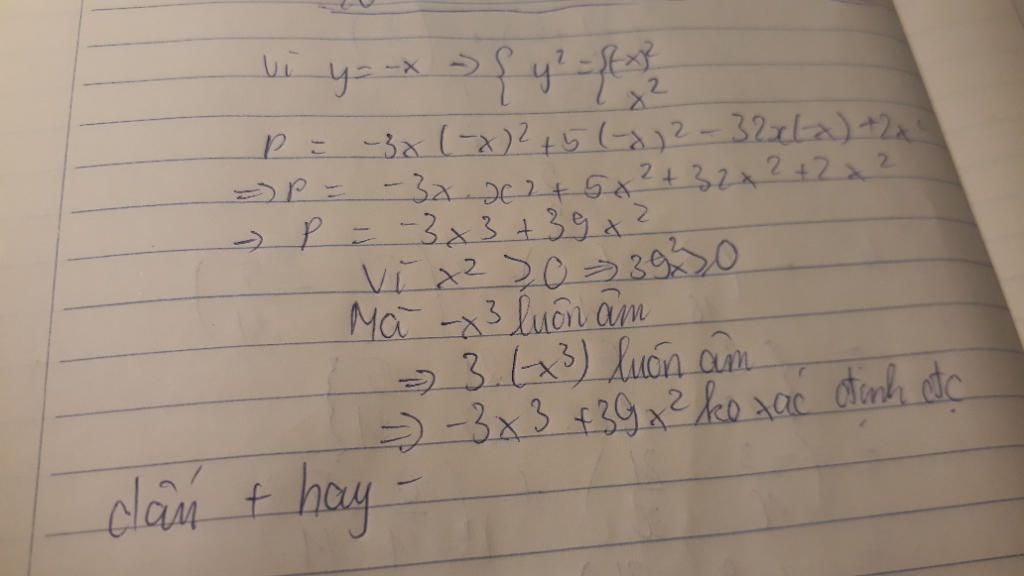 Vì y = -x => { y² = { (-x)²
x²
P = -3x(-x)² + 5(-x)² - 32x(-x) + 2x²
=> P = -3x.x² + 5x² + 32x² + 2x²
→ P = -3x3 + 39x²
Vì x² ≥ 0 => 39x² ≥ 0
Mà -x³ luôn âm
=> 3.(-x³) luôn âm
=> -3x3 + 39x² ko xác định đc
dấu + hay -